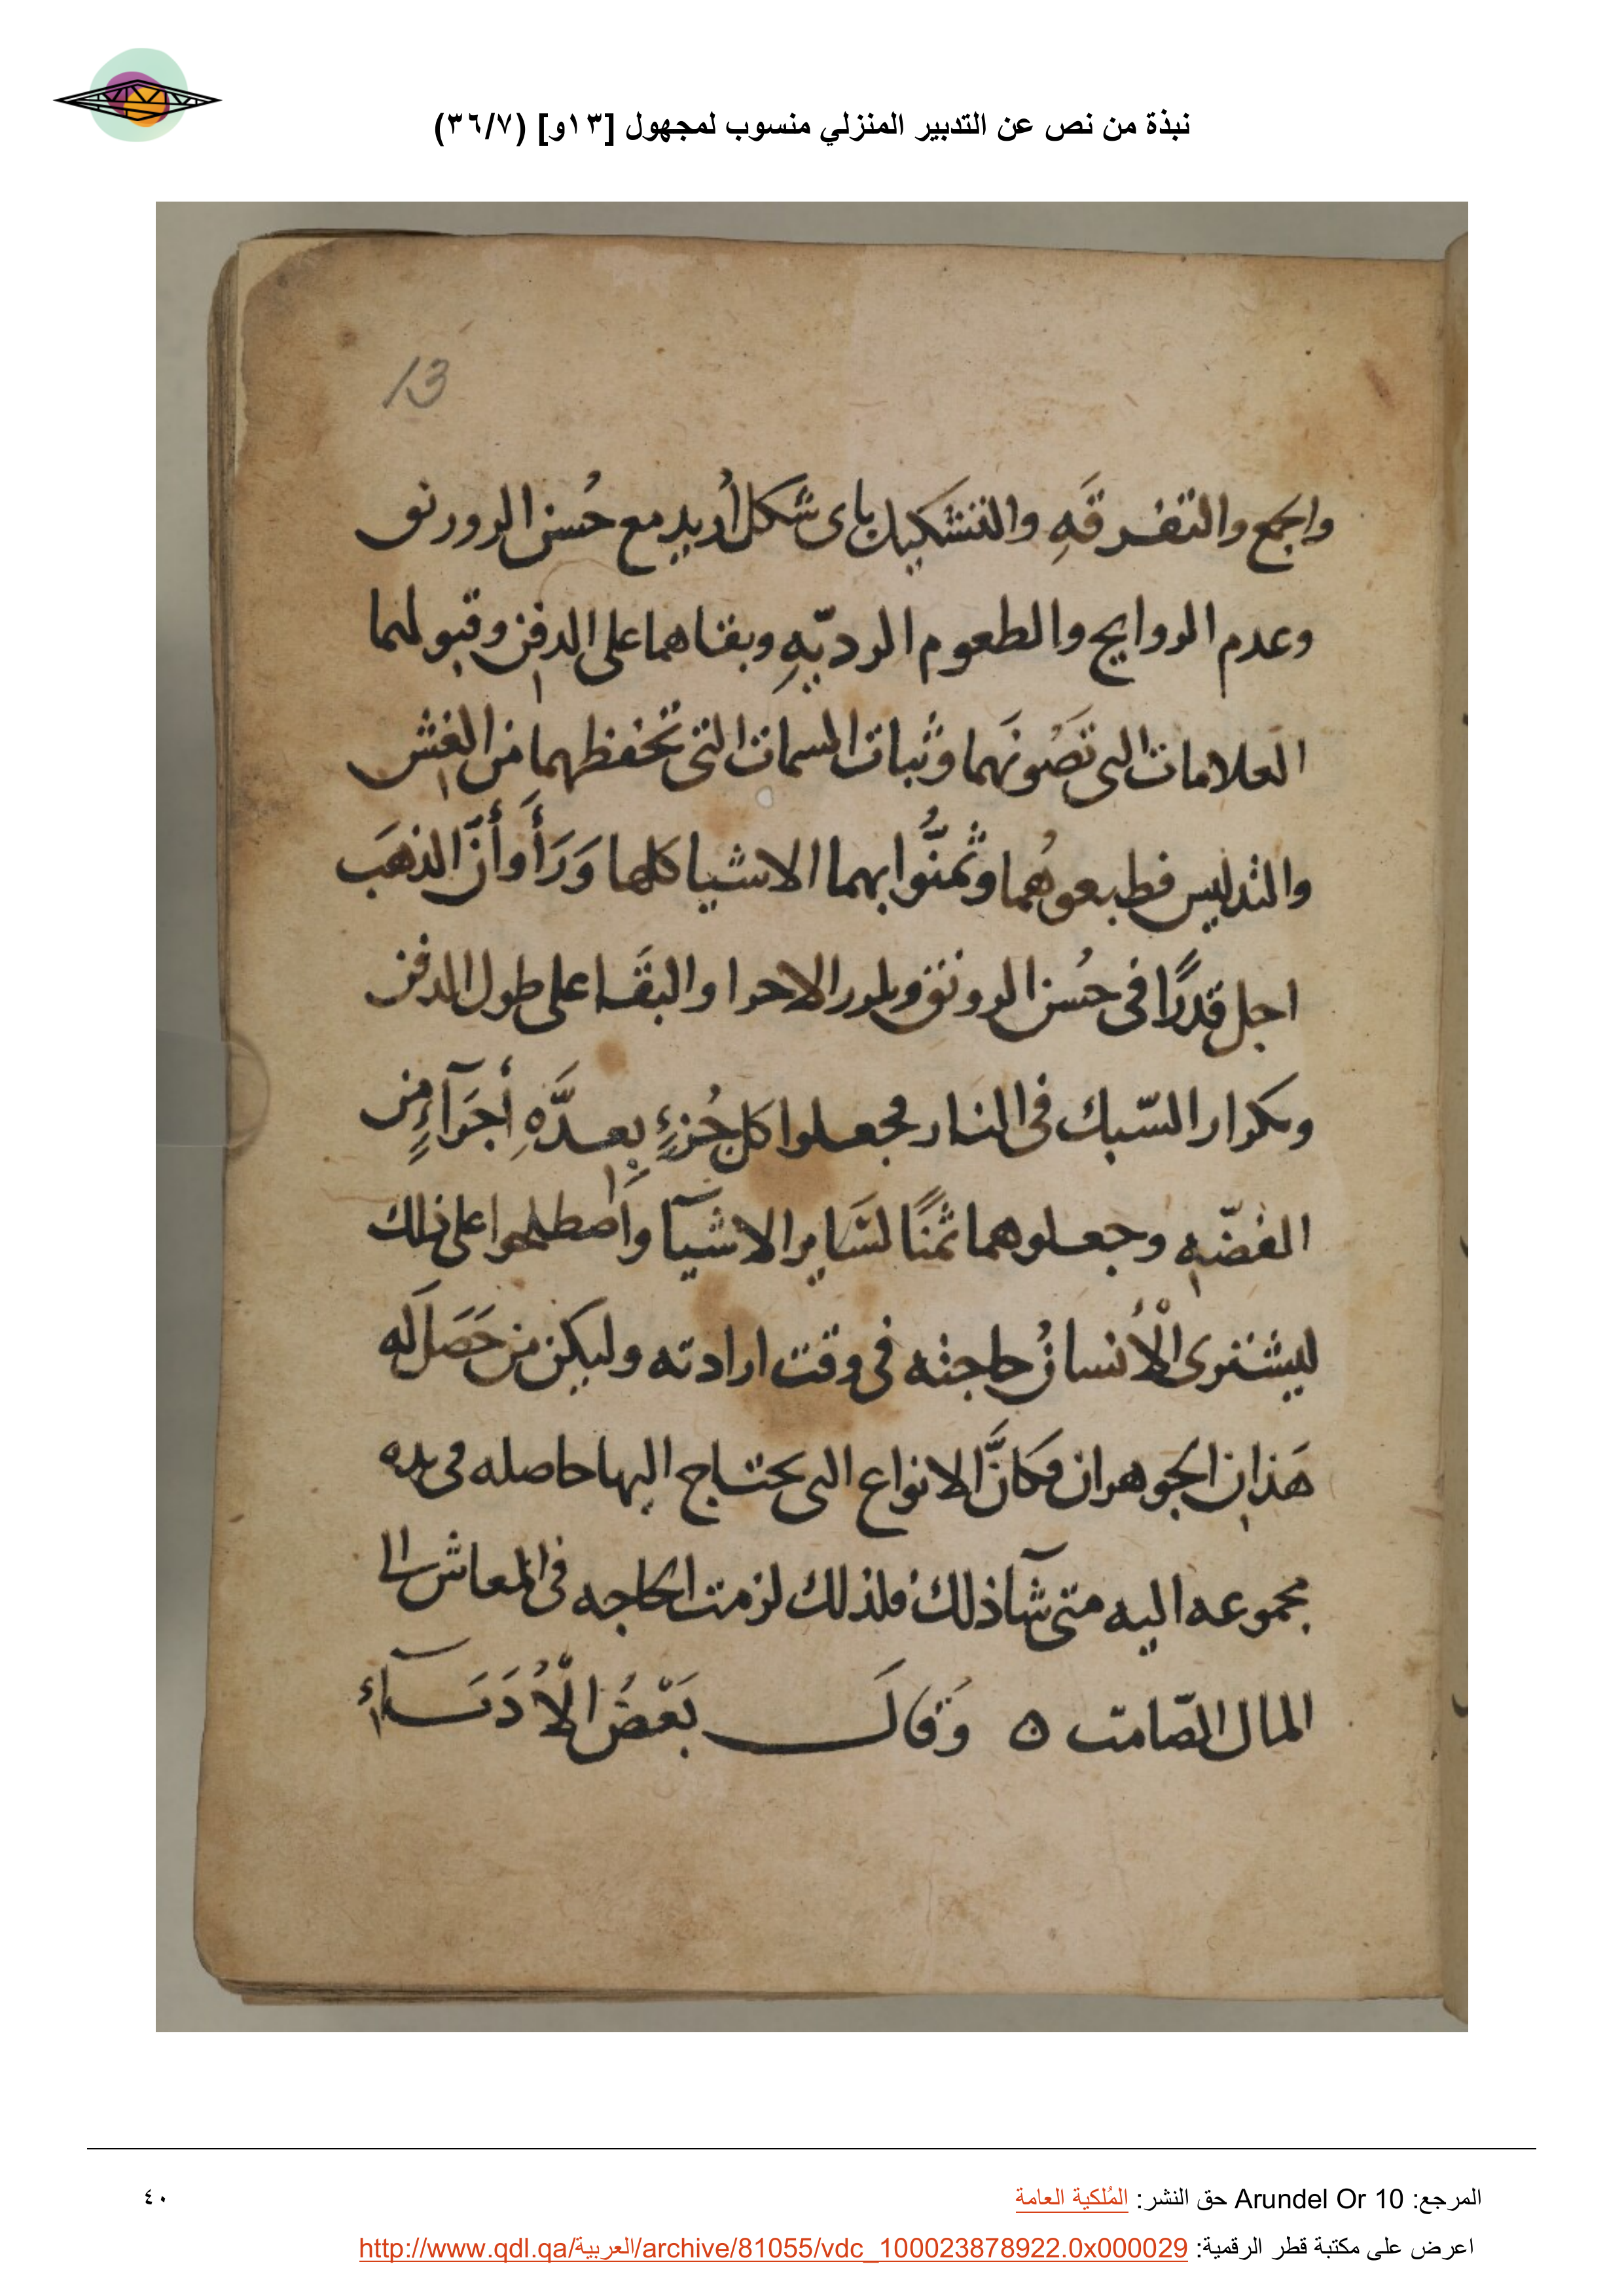 نبذة من نص عن التدبير المنزلي منسوب لمجهول [١٣و] (٣٦/٧)
13
والجمع والتفرقَهِ والتشكيك باى شكل أُريد مع حُسن الرورنق
وعدم الروايح والطعوم الرديّهِ وبقاهما على الدفن وقبولهما
العلامات التى تَصُونَهما وثبات السمات التى تحفظهما من الغش
والتدليس فطبعوهُما وثمنُّوا بهما الاشيا كلها وَرَأَوا أنّ الذهَب
اجل قدرًا فى حُسن الرونق وتلزز الاجزا والبقَا على طول الدفن
وتكرار السّبك فى النار فجعلوا كل جُزءٍ بِعدَّهِ أجزآءٍ من
الفضّهِ وجعلوهما ثمنًا لسَاير الاشيآ واصطلحوا على ذلك
ليشترى الْأنسانُ حاجته فى وقت ارادته وليكن من حَصَلَ له
هَذانِ الجوهران فكانَّ الانواع التى يحتاج اليها حاصله فى يده
مجموعه اليه متى شآ ذلك فلذلك لزمت الحاجه فى المعاش الى
المال الصّامت ٥ وَقالَ بَعْضُ الْأُدَبَآءِ
المرجع: Arundel Or 10 حق النشر: المُلكية العامة
٤٠
اعرض على مكتبة قطر الرقمية: http://www.qdl.qa/العربية/archive/81055/vdc_100023878922.0x000029